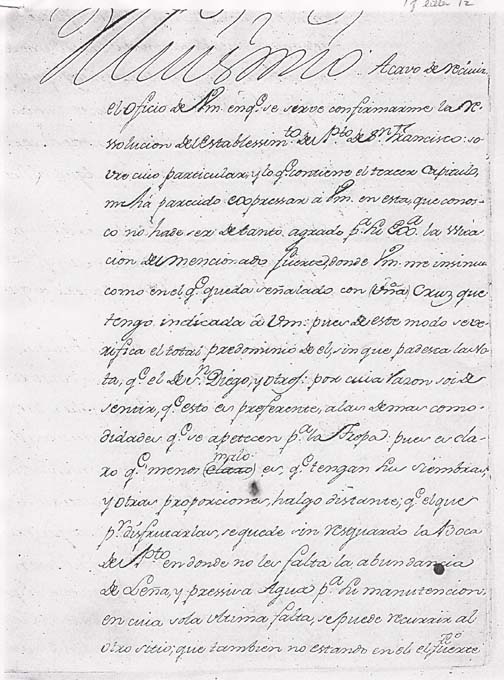 Acavo de recivir
el oficio de Vm. en q.e se serve confirmarme la re-
ssolucion del establessim.to del P.to de S.n Francisco: so-
vre cuio particular, y lo q.e contiene el tercer capitulo,
me há parecido expressar a Vm. en esta, que conos-
co no hade ser de tanto agrado p.a Su Ex.a la situa-
cion del mencionado fuerte, donde Vm. me insinua
como en el q.e queda señalado con (Vña) Cruz que
tengo indicada á Vm: pues de este modo se ve-
rifica el total predominio de el, sin que padesca la no-
ta, q.e el de S.n Diego, y otros: por cuia razon soi de
sentir, q.e esto es preferente, a las demas como-
didades q.e se apetecen p.a la Tropa: pues es cla-
malo
ro q.e menos (claro) es, q.e tengan sus siembras,
y otras proporciones, halgo distante; q.e el que
p.r disfrutarlas, se quede sin resguardo la Boca
del P.to en donde no les falta la abundancia
de Leña, y pressiva Agua p.a su manutencion,
en cuia sola ultima falta, se puede recurrir al
otro sitio; que tambien no estando en el el fuerte